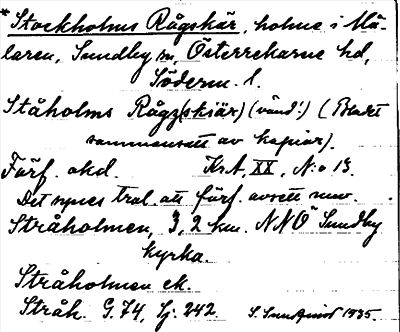 * Stockholms Rågskär, holme i Mä-
laren, Sundby sn, Österrekarne hd,
Söderm. l.
Ståholms Rågz(skiär) (vänd!) (Bladet
sammansatt av kopior).
Förf. okd. KrA, XX, N:o 13.
Det synes trol. att förf. avsett nuv.
Stråholmen, 3,2 km. NNÖ Sundby
kyrka.
Stråholmen ek.
Stråh. G.74, Lj. 242. 1935.